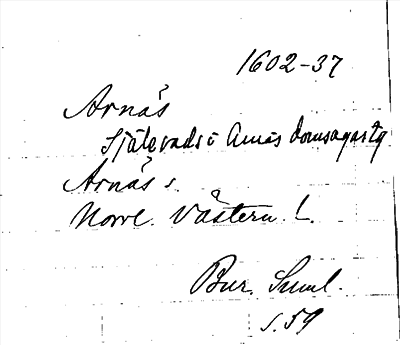 1602-37
Arnäs
Själevads i Arnäs domsagas tg
Arnäs s.
Norrl. Västern. l.
Bur. Suml.
s. 59